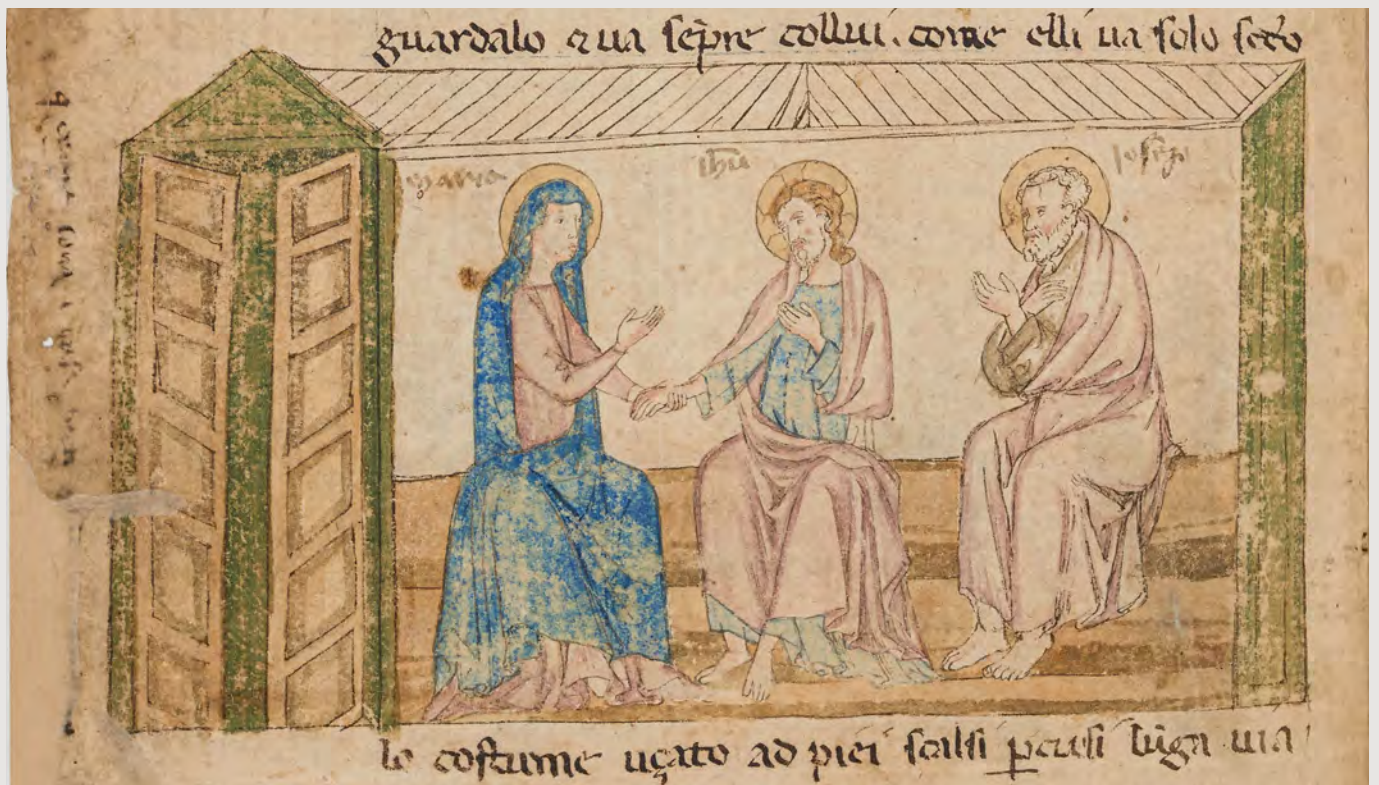 guardalo ⁊ ua sẽpre collui. come elli ua solo
maria
ihũ
lo costume uçato ad piei scalsi ꝑ cusi lũga uia